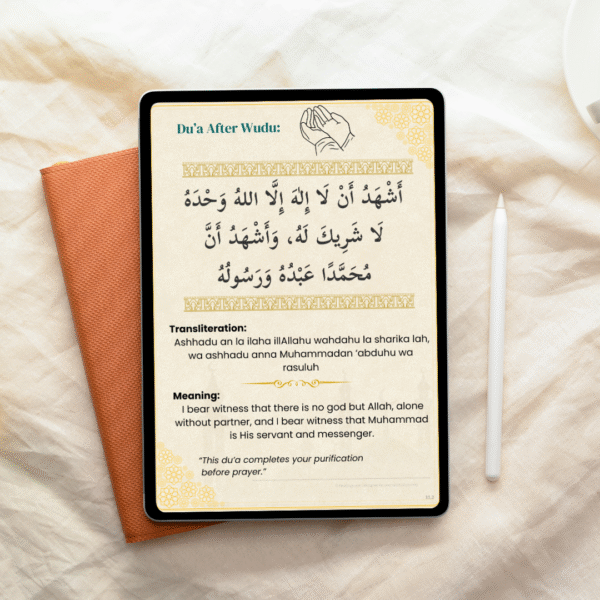 Du'a After Wudu:
أَشْهَدُ أَنْ لَا إِلٰهَ إِلَّا اللهُ وَحْدَهُ
لَا شَرِيكَ لَهُ، وَأَشْهَدُ أَنَّ
مُحَمَّدًا عَبْدُهُ وَرَسُولُهُ
Transliteration:
Ashhadu an la ilaha illAllahu wahdahu la sharika lah,
wa ashhadu anna Muhammadan ‘abduhu wa
rasuluh
Meaning:
I bear witness that there is no god but Allah, alone
without partner, and I bear witness that Muhammad
is His servant and messenger.
“This du’a completes your purification
before prayer.”